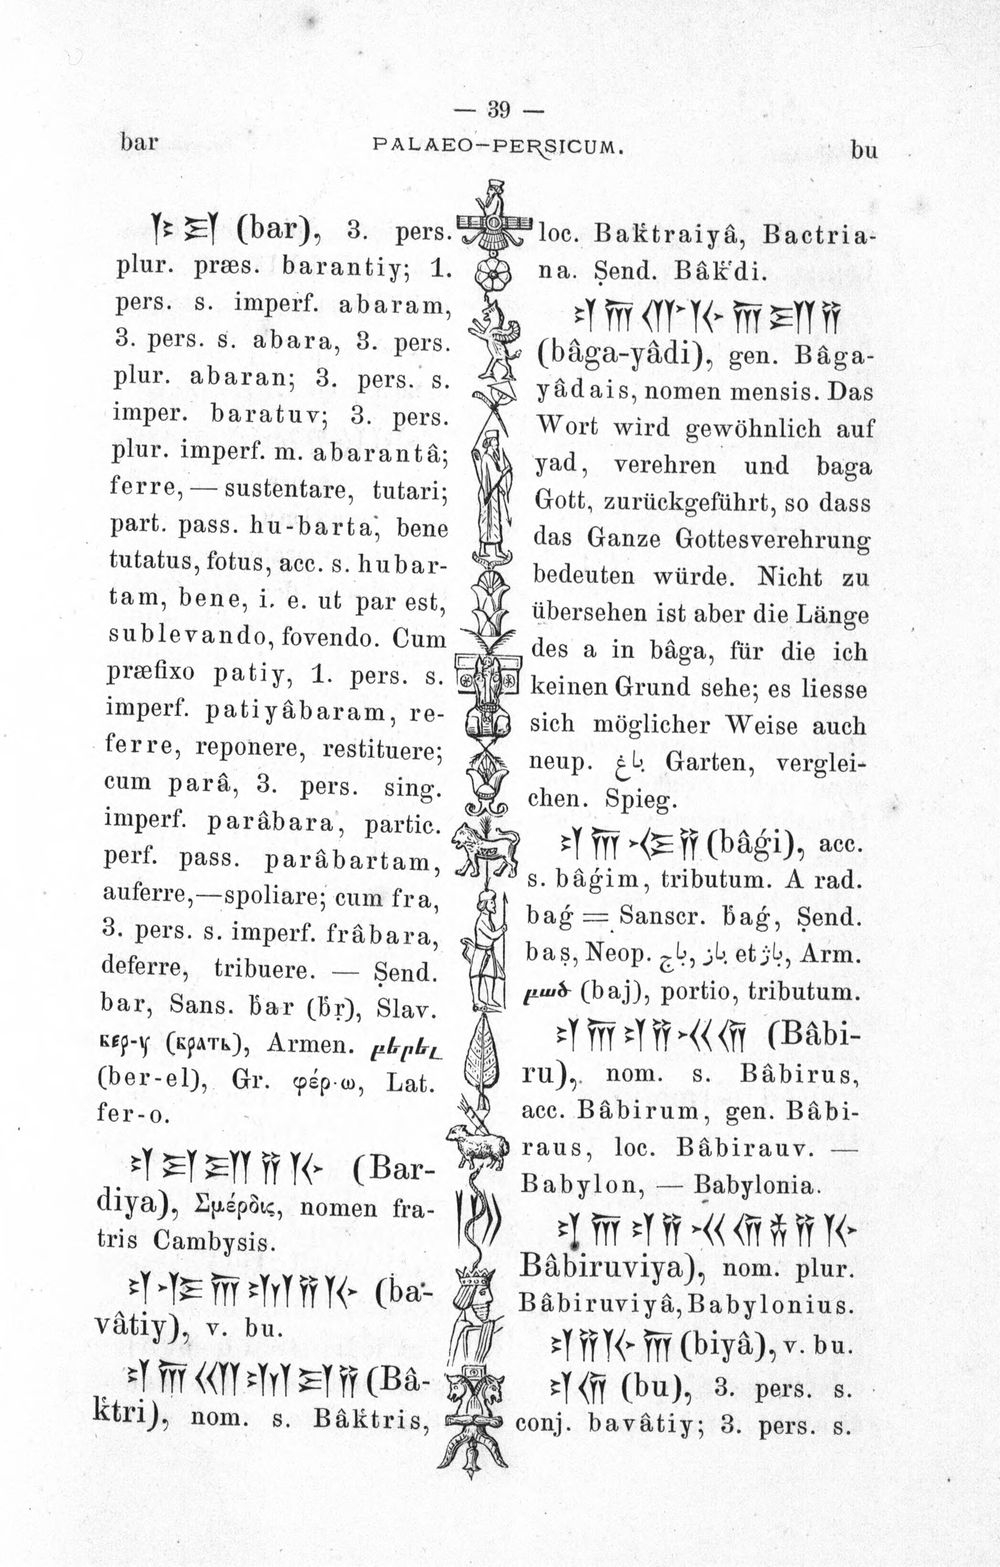 — 39 —
bar
PALAEO–PERSICUM.
bu
𐎲𐎼 (bar), 3. pers.
plur. præs. barantiy; 1.
pers. s. imperf. abaram,
3. pers. s. abara, 3. pers.
plur. abaran; 3. pers. s.
imper. baratuv; 3. pers.
plur. imperf. m. abarantâ;
ferre, — sustentare, tutari;
part. pass. hu-barta, bene
tutatus, fotus, acc. s. hubar-
tam, bene, i. e. ut par est,
sublevando, fovendo. Cum
præfixo patiy, 1. pers. s.
imperf. patiyâbaram, re-
ferre, reponere, restituere;
cum parâ, 3. pers. sing.
imperf. parâbara, partic.
perf. pass. parâbartam,
auferre,—spoliare; cum fra,
3. pers. s. imperf. frâbara,
deferre, tribuere. — Şend.
bar, Sans. b̔ar (b̔ṛ), Slav.
(крать), Armen. բերել
(ber-el), Gr. φέρ-ω, Lat.
fer-o.
𐎲𐎼𐎮𐎡𐎹 (Bar-
diya), Σμέρδις, nomen fra-
tris Cambysis.
𐎲𐎺𐎠𐎫𐎡𐎹 (ba-
vâtiy), v. bu.
𐎲𐎠𐎧𐎫𐎼𐎡 (Bâ-
k̔tri), nom. s. Bâk̔tris,
loc. Bak̔traiyâ, Bactria-
na. Şend. Bâk̔di.
𐎲𐎠𐎥𐎹𐎠𐎮𐎡
(bâga-yâdi), gen. Bâga-
yâdais, nomen mensis. Das
Wort wird gewöhnlich auf
yad, verehren und baga
Gott, zurückgeführt, so dass
das Ganze Gottesverehrung
bedeuten würde. Nicht zu
übersehen ist aber die Länge
des a in bâga, für die ich
keinen Grund sehe; es liesse
sich möglicher Weise auch
neup. باغ Garten, verglei-
chen. Spieg.
𐎲𐎠𐎪𐎡 (bâǵi), acc.
s. bâǵim, tributum. A rad.
baǵ = Sanscr. b̔aǵ, Şend.
baş, Neop. باج, باز et باژ, Arm.
բաժ (baj), portio, tributum.
𐎲𐎠𐎲𐎡𐎽𐎢 (Bâbi-
ru), nom. s. Bâbirus,
acc. Bâbirum, gen. Bâbi-
raus, loc. Bâbirauv. —
Babylon, — Babylonia.
𐎲𐎠𐎲𐎡𐎽𐎢𐎻𐎡𐎹
Bâbiruviya), nom. plur.
Bâbiruviyâ, Babylonius.
𐎲𐎡𐎹𐎠 (biyâ), v. bu.
𐎲𐎢 (bu), 3. pers. s.
conj. bavâtiy; 3. pers. s.